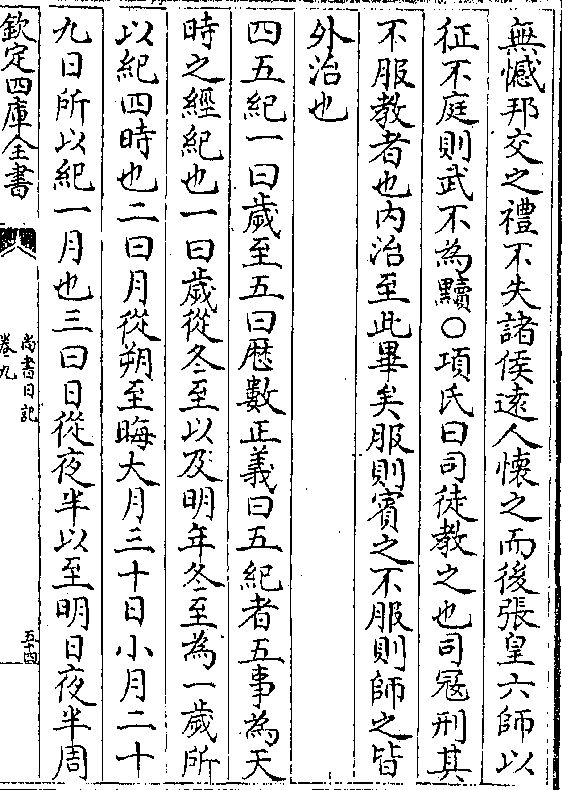 無憾邦交之禮不失諸侯遠人懷之而後張皇六師以
征不庭則武不為黷〇項氏曰司徒教之也司冦刑其
不服教者也内治至此畢矣服則賓之不服則師之皆
外治也
四五紀一曰歲至五曰厯數正義曰五紀者五事為天
時之經紀也一曰歲從冬至以及明年冬至為一歲所
以紀四時也二曰月從朔至晦大月三十日小月二十
九日所以紀一月也三曰日從夜半以至明日夜半周
欽定四庫全書
尚書日記
卷九
五十四